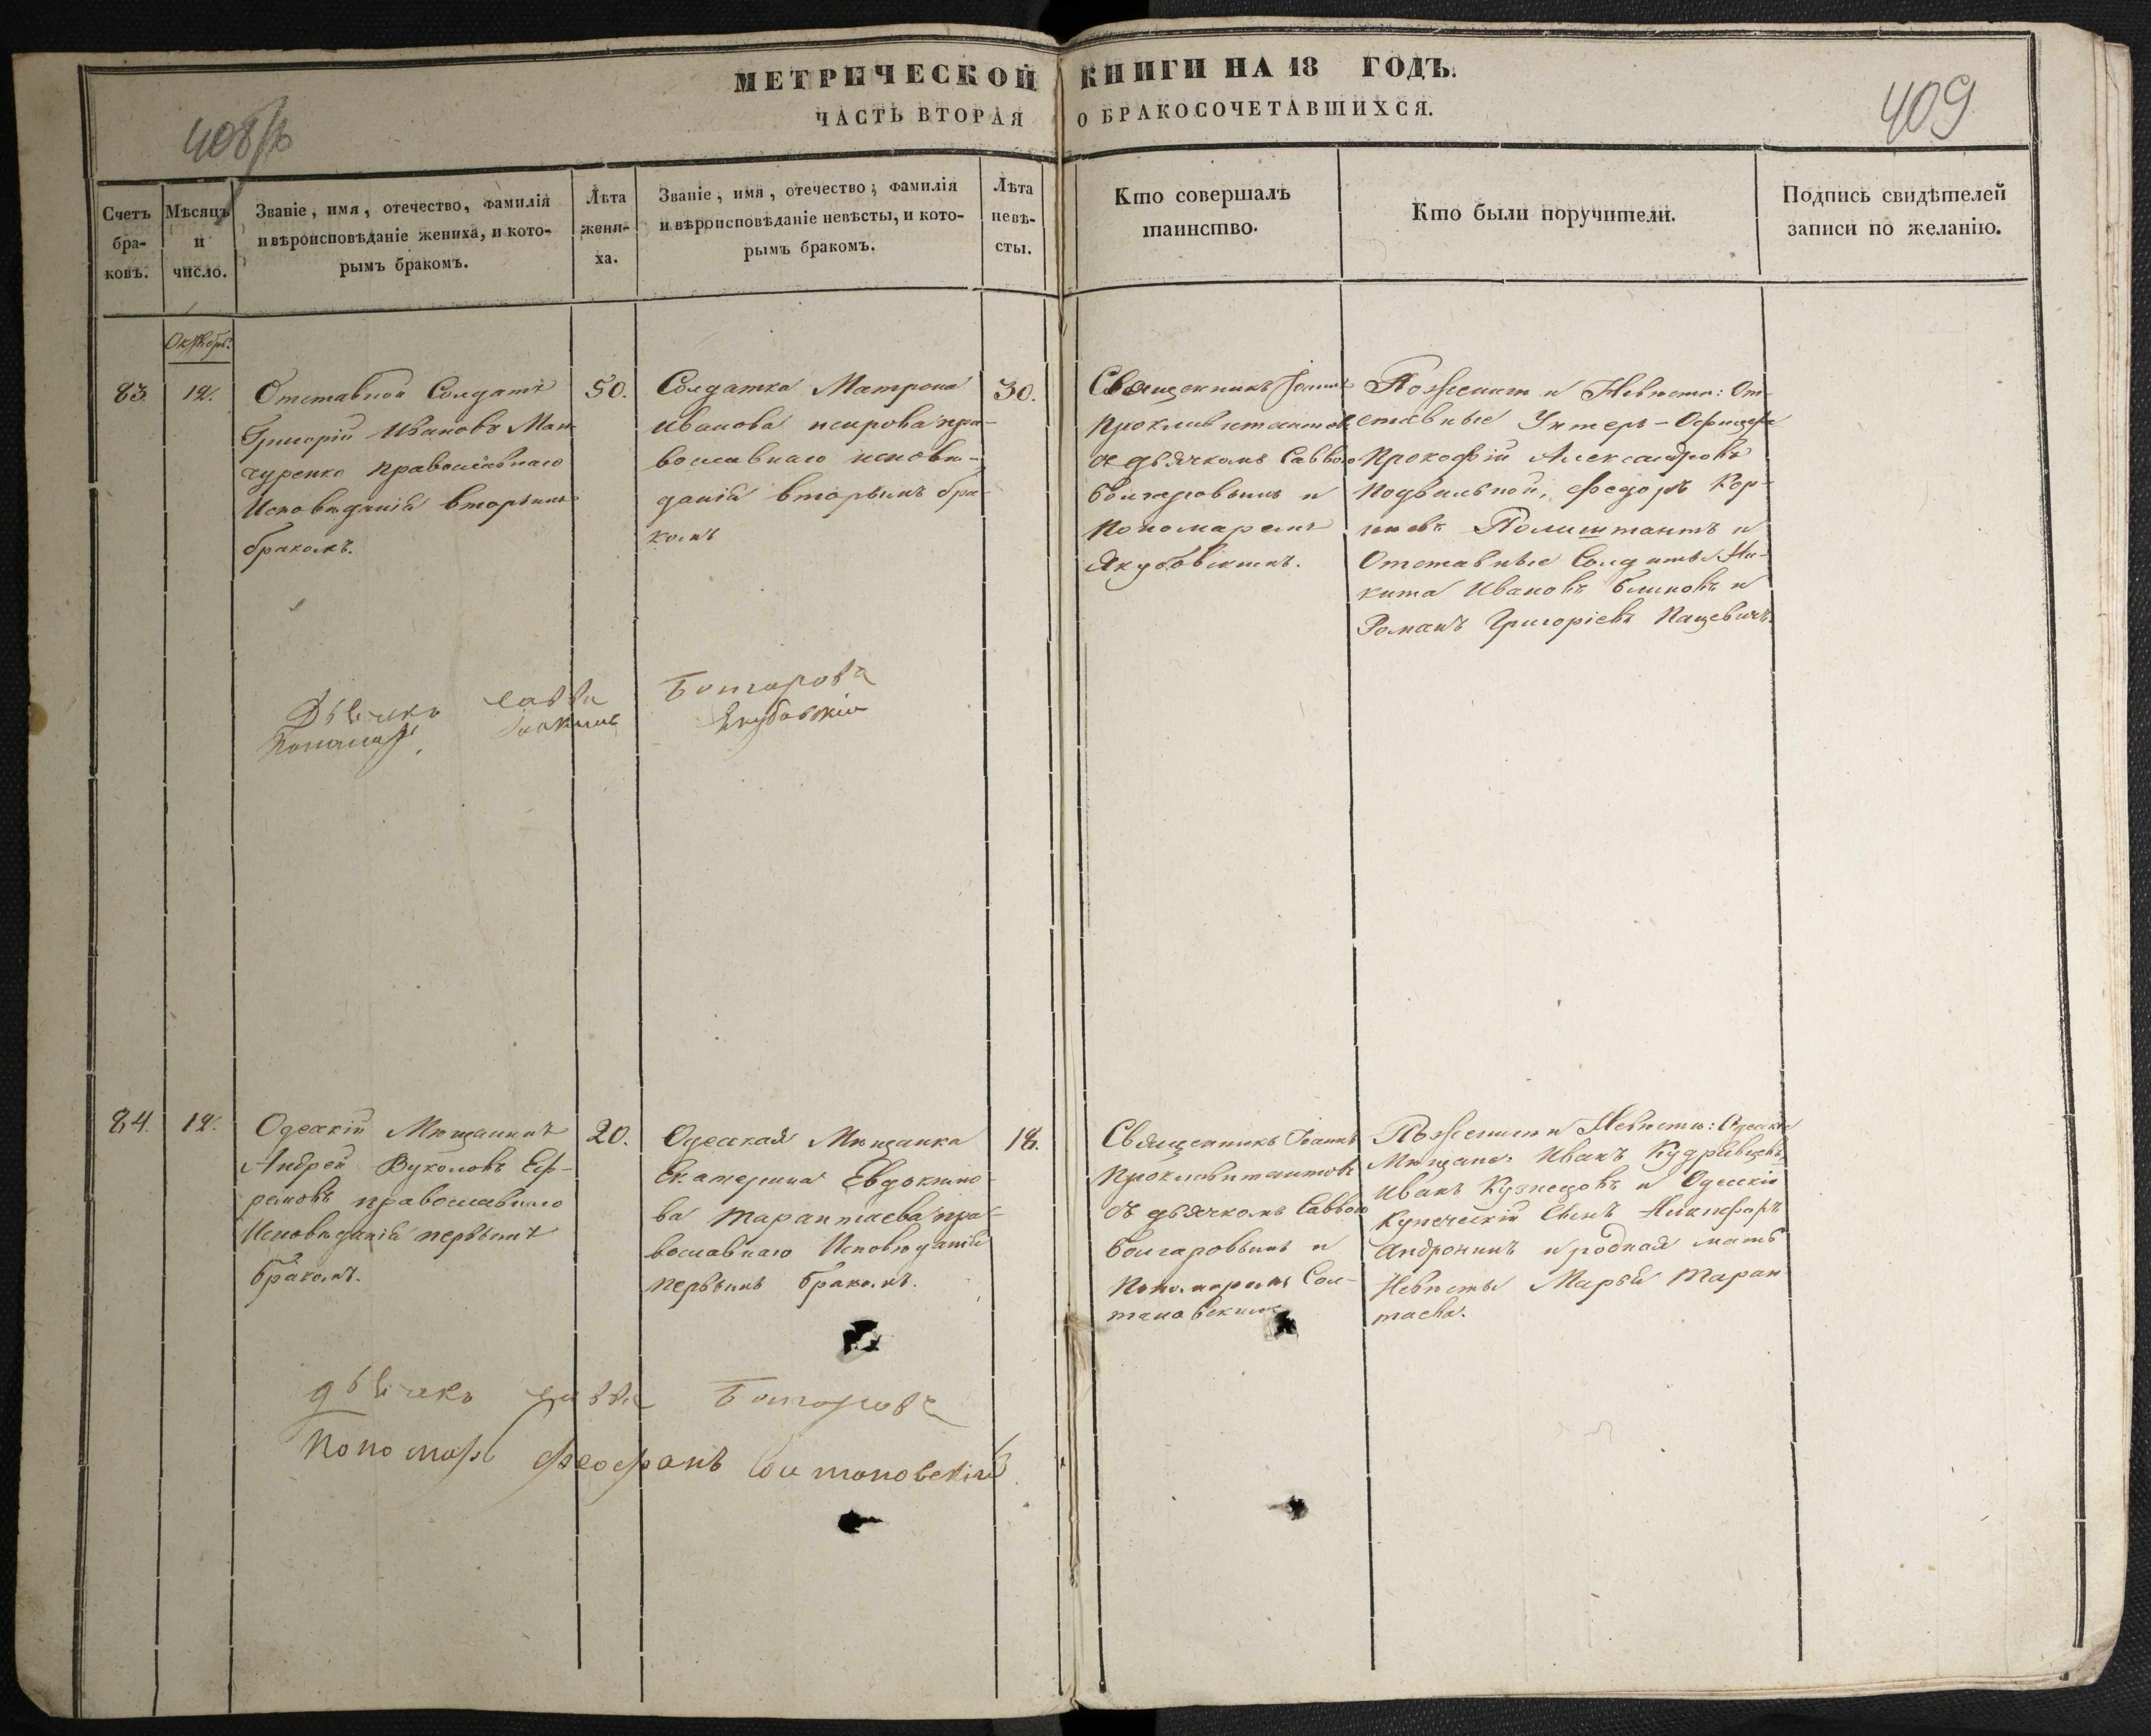 МЕТРИЧЕСКОЙ КНИГИ НА 18 ГОДЪ.
ЧАСТЬ ВТОРАЯ О БРАКОСОЧЕТАВШИХСЯ.
409
Счетъ бра-ковъ.
Мѣсяцъ и число.
Званіе, имя, отечество, фамилія
и вѣроисповѣданіе жениха, и кото-
рымъ бракомъ.
Лѣта
жени-
ха.
Званіе, имя, отечество, фамилія
и вѣроисповѣданіе невѣсты, и кото-
рымъ бракомъ.
Лѣта
невѣ-
сты.
Кто совершалъ
таинство.
Кто были поручители.
Подпись свидѣтелей
записи по желанію.
Октябрь.
83.
12.
Отставной Солдатъ
Григорій Ивановъ Ман-
чуренко православнаго
Исповѣданія вторымъ
бракомъ.
50.
Солдатка Матрона
Иванова пра-
вославнаго исповѣ-
данія вторымъ бра-
комъ
30.
Священникъ Іоаннъ
съ дьячкомъ Саввою
Болгаровымъ и
Пономаремъ
Якубовскимъ.
По женихѣ и Невѣстѣ: От-
ставные Унтеръ-Офицеры
Прокофій Александровъ
Подвальной, Федоръ Кар-
Полиштантъ и
Отставные Солдаты Ни-
кита Ивановъ Блиновъ и
Романъ Григоріевъ Пацевичъ.
Дьячокъ Савва Болгаровъ
Пономарь Якубовскій
84.
12.
Одескій Мѣщанинъ
Андрей Вуколовъ Еф-
ремовъ православнаго
Исповѣданія первымъ
бракомъ.
20.
Одеская Мѣщанка
Екатерина Евдокимо-
ва Тарантаева пра-
вославнаго Исповѣданія
первымъ бракомъ.
18.
Священникъ Іоаннъ
съ дьячкомъ Саввою
Болгаровымъ и
Пономаремъ Сол-
тановскимъ
По женихѣ и Невѣстѣ: Одескіе
Мѣщане: Иванъ Кудрявцевъ,
Иванъ Кузнецовъ и Одескій
Купеческій Сынъ Никифоръ
Андронинъ и родная мать
Невѣсты Марья Таран
таева.
дьячокъ Савва Болгаровъ
Пономарь Феофанъ Солтановскій